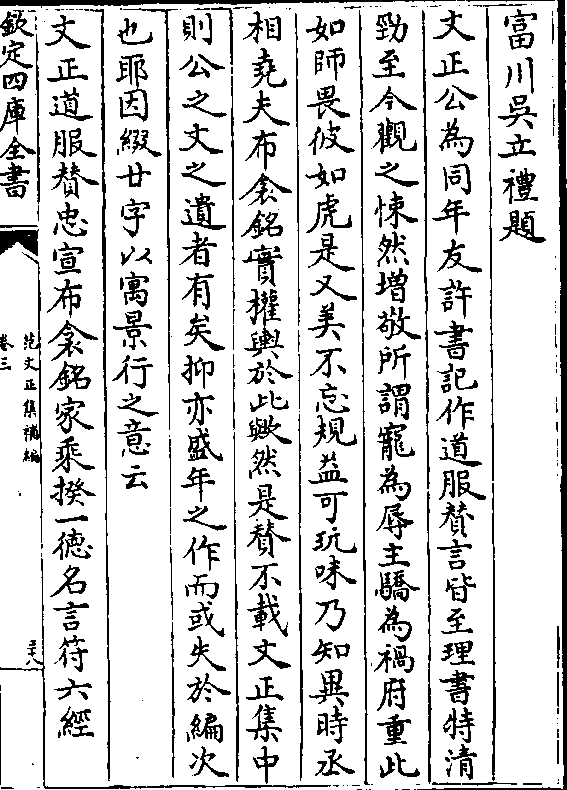 富川吳立禮題
文正公為同年友許書記作道服賛言皆至理書特清
勁至今觀之悚然增敬所謂寵為辱主驕為禍府重此
如師畏彼如虎是又美不忘規益可玩味乃知異時丞
相堯夫布衾銘實權輿於此歟然是賛不載文正集中
則公之文之遺者有矣抑亦盛年之作而或失於編次
也耶因綴廿字以寓景行之意云
文正道服賛忠宣布衾銘家乘揆一徳名言符六經
欽定四庫全書
范文正集補編
卷三
三十八